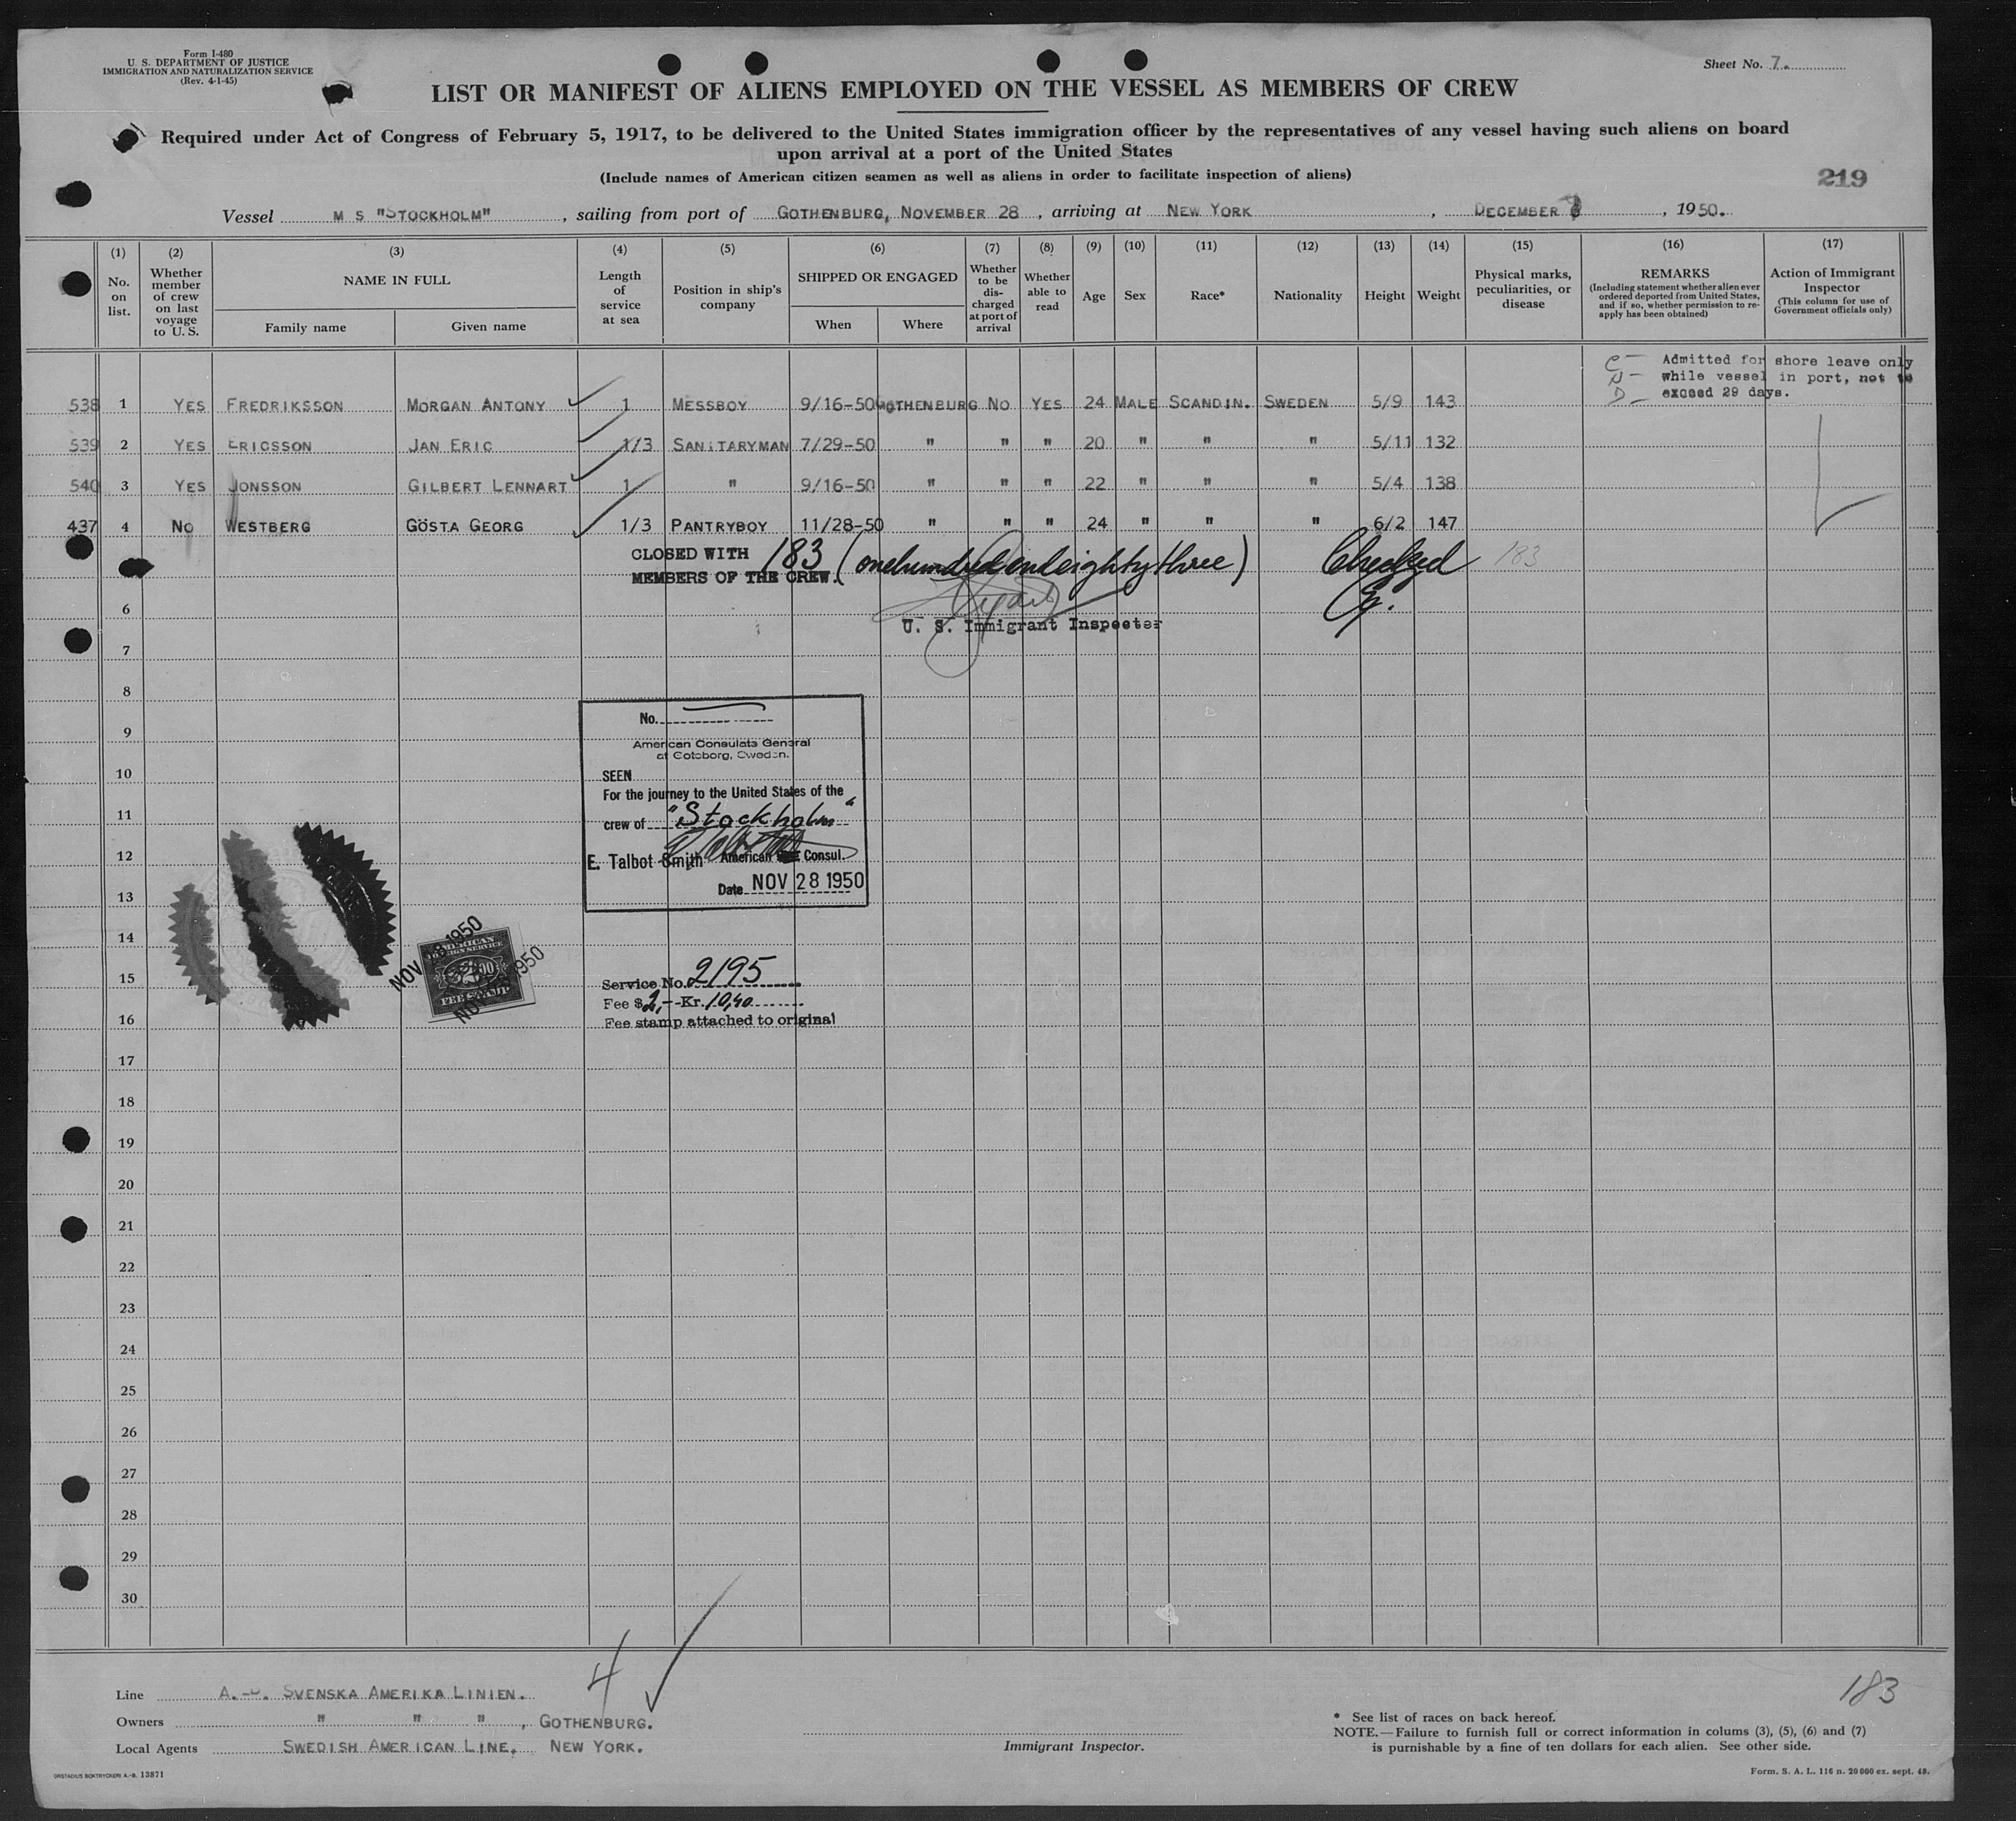 Form I-480
U. S. DEPARTMENT OF JUSTICE
IMMIGRATION AND NATURALIZATION SERVICE
(Rev. 4-1-45)
Sheet No. 7.
LIST OR MANIFEST OF ALIENS EMPLOYED ON THE VESSEL AS MEMBERS OF CREW
Required under Act of Congress of February 5, 1917, to be delivered to the United States immigration officer by the representatives of any vessel having such aliens on board
upon arrival at a port of the United States
(Include names of American citizen seamen as well as aliens in order to facilitate inspection of aliens)
219
Vessel M S "STOCKHOLM", sailing from port of GOTHENBURG, NOVEMBER 28, arriving at NEW YORK, DECEMBER, 1950.
(1) No. on list.
(2) Whether member of crew on last voyage to U. S.
(3) NAME IN FULL
Family name Given name
(4) Length of service at sea
(5) Position in ship's company
(6) SHIPPED OR ENGAGED
When Where
(7) Whether to be discharged at port of arrival
(8) Whether able to read
(9) Age
(10) Sex
(11) Race*
(12) Nationality
(13) Height
(14) Weight
(15) Physical marks, peculiarities, or disease
(16) REMARKS
(Including statement whether alien ever ordered deported from United States, and if so, whether permission to re-apply has been obtained)
(17) Action of Immigrant Inspector
(This column for use of Government officials only)
C — Admitted for shore leave only
N — while vessel in port, not to
D — exceed 29 days.
538 1 YES FREDRIKSSON MORGAN ANTONY 1 MESSBOY 9/16-50 GOTHENBURG NO YES 24 MALE SCANDIN. SWEDEN 5/9 143
539 2 YES ERICSSON JAN ERIC 1/3 SANITARYMAN 7/29-50 " " " 20 " " " 5/11 132
540 3 YES JONSSON GILBERT LENNART 1 " 9/16-50 " " " 22 " " " 5/4 138
437 4 NO WESTBERG GÖSTA GEORG 1/3 PANTRYBOY 11/28-50 " " " 24 " " " 6/2 147
CLOSED WITH 183 (onehundredandeightythree) Checked 183
MEMBERS OF THE CREW.
6
U. S. Immigrant Inspector
7
8
No.
9
American Consulate General
at Goteborg, Sweden.
10
SEEN
For the journey to the United States of the
11
crew of "Stockholm"
12
E. Talbot Smith American Consul.
Date NOV 28 1950
13
14
AMERICAN
FOREIGN SERVICE
$2.00
FEE STAMP
15
Service No. 2195
Fee $ 2,- Kr. 10,40
16
Fee stamp attached to original
17
18
19
20
21
22
23
24
25
26
27
28
29
30
4
183
Line A.-B. SVENSKA AMERIKA LINIEN.
Owners " " ", GOTHENBURG.
Local Agents SWEDISH AMERICAN LINE. NEW YORK.
Immigrant Inspector.
* See list of races on back hereof.
NOTE.—Failure to furnish full or correct information in colums (3), (5), (6) and (7)
is purnishable by a fine of ten dollars for each alien. See other side.
ORSTADIUS BOKTRYCKERI A.-B. 13871
Form. S. A. L. 116 n. 20 000 ex. sept. 48.